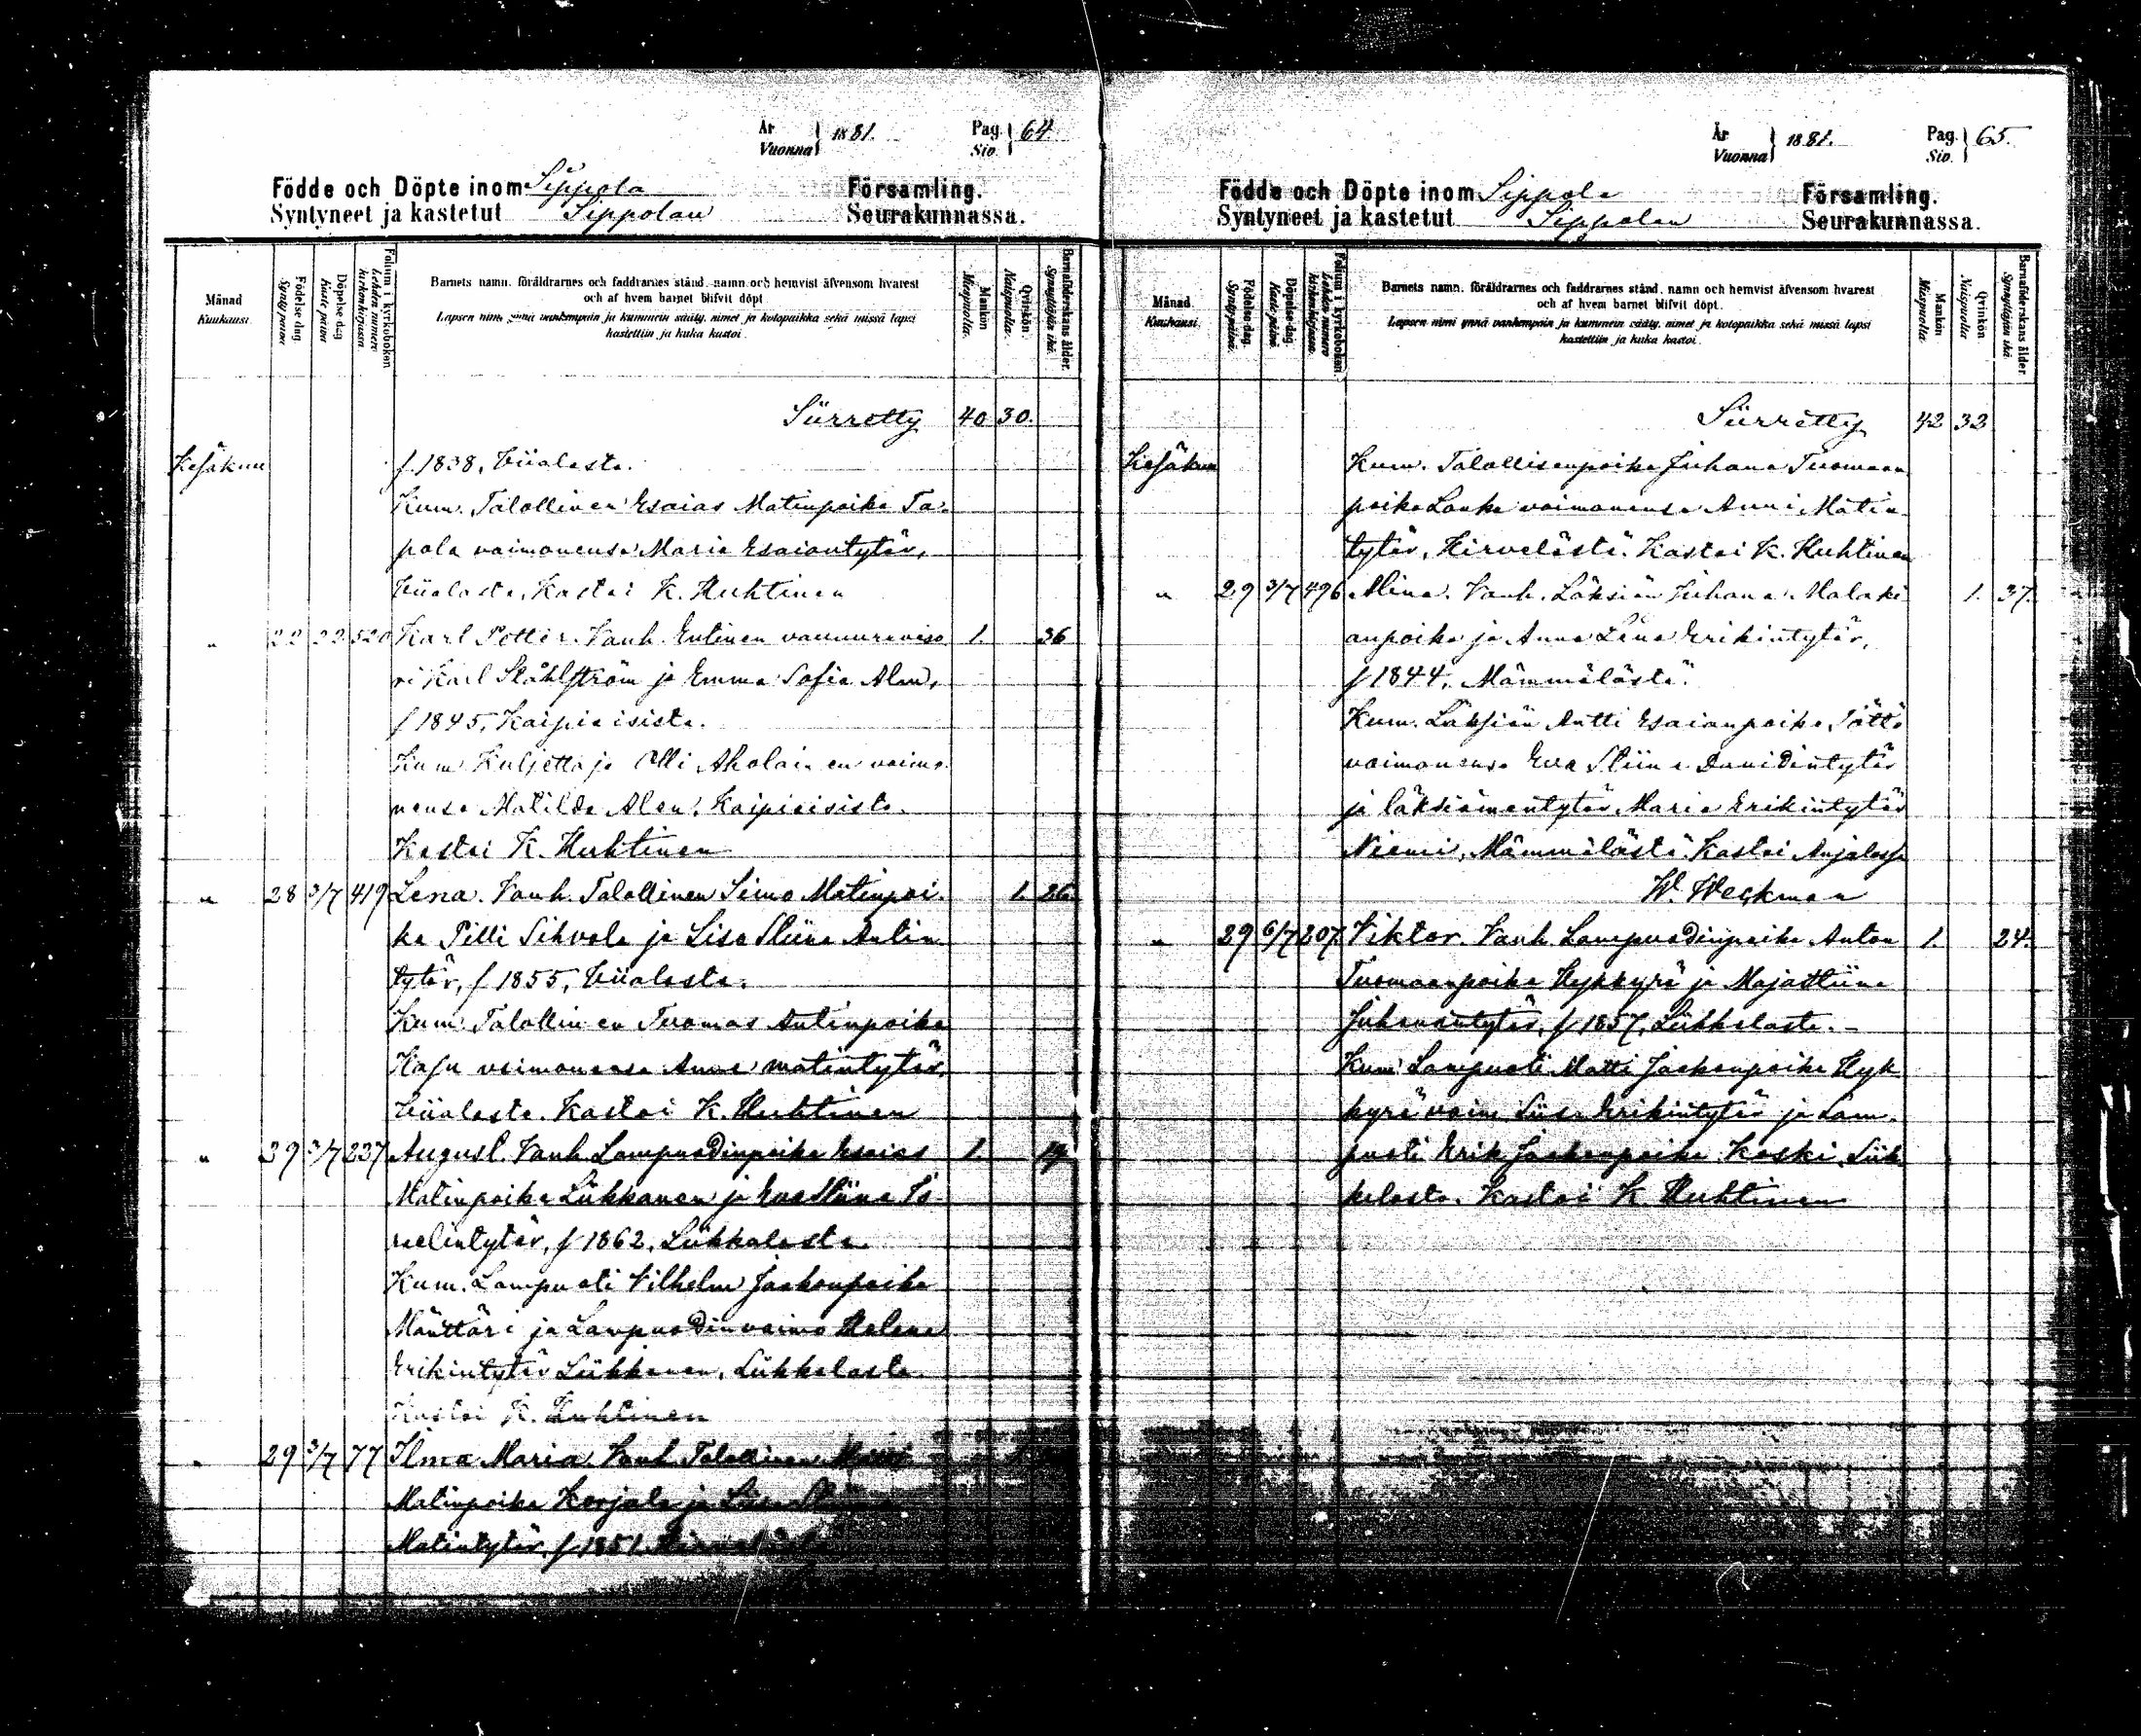 År
Vuonna 1881.
Pag.
Siv. 64
Födde och Döpte inom Sippola Församling.
Syntyneet ja kastetut Sippolan Seurakunnassa.
Månad
Kuukausi.
Födelse dag
Synty päivä
Döpelse dag
Kaste päivä
Folium i kyrkoboken
Lehden numero kirkonkirjassa
Barnets namn, föräldrarnes och faddrarnes stånd, namn och hemvist äfvensom hvarest
och af hvem barnet blifvit döpt.
Lapsen nimi ynnä vanhempain ja kummein sääty, nimet ja kotopaikka sekä missä lapsi
kastettiin ja kuka kastoi.
Mankön
Miespuolta.
Qvinkön
Naispuolta.
Barnaföderskans ålder.
Synnyttäjän ikä.
Siirretty 40 30.
Kesäkuu f. 1838, Viialasta.
Kum. Talollinen Esaias Matinpoika Ta-
pola vaimonensa Maria Esaiantytär,
Viialasta. Kastoi K. Huhtinen
" 22 22 520 Karl Petter. Vanh. Entinen vaunureviso 1. 36
ri Karl Ståhlström ja Emma Sofia Alen,
f 1845, Kaipiaisista.
Kum Kuljettaja Olli Aholainen vaimo
nensa Matilda Alen, Kaipiaisista.
Kastoi K. Huhtinen
" 28 3/7 419 Lena. Vanh. Talollinen Simo Matinpoi- 1. 26.
ka Pilli Sihvola ja Lisa Stiina Antin
tytär, f 1855, Viialasta.
Kum. Talollinen Tuomas Antinpoika
Haju vaimonensa Anna matintytär,
Viialasta. Kastoi K. Huhtinen
" 29 3/7 237 August. Vanh. Lampuodinpoika Esaias 1. 19.
Matinpoika Liikkanen ja Eva Stiina Is-
raelintytär, f 1862, Liikkalasta
Kum. Lampuoti Vilhelm Jaakonpoika
Mänttäri ja Lampuodinvaimo Helena
Erikintytär Liikkanen, Liikkalasta.
Kastoi K. Huhtinen
" 29 3/7 77 Ilma Maria. Vanh. Talollinen Matti
Matinpoika Korjala ja Liisa Stiina
Matintytär, f 1851.
År
Vuonna 1881.
Pag.
Siv. 65.
Födde och Döpte inom Sippola Församling.
Syntyneet ja kastetut Sippolan Seurakunnassa.
Månad
Kuukausi.
Födelse dag.
Synty päivä.
Döpelse dag.
Kaste päivä.
Folium i kyrkoboken
Lehden numero kirkonkirjassa
Barnets namn, föräldrarnes och faddrarnes stånd, namn och hemvist äfvensom hvarest
och af hvem barnet blifvit döpt.
Lapsen nimi ynnä vanhempain ja kummein sääty, nimet ja kotopaikka sekä missä lapsi
kastettiin ja kuka kastoi.
Mankön
Miespuolta.
Qvinkön
Naispuolta
Barnaföderskans ålder
Synnyttäjän ikä
Siirretty 42 32
Kesäkuu Kum. Talollisenpoika Juhana Tuomaan
poika Lanka vaimonensa Anni Matin
tytär, Hirvelästä. Kastoi K. Huhtinen
" 29 3/7 496 Alina. Vanh. Läksiän Juhana Malaki 1. 37.
anpoika ja Anna Lena Erikintytär,
f 1844, Mämmälästä.
Kum. Läksiän Antti Esaianpoika Tött
vaimonensa Eva Stiina Davidintytär
ja läksiämentytär Maria Erikintytär
Niemi, Mämmälästä. Kastoi Anjalassa
W. Weckman
" 29 6/7 207 Viktor. Vanh. Lampuodinpoika Anton 1. 24.
Tuomaanpoika Hykkyrä ja Maja Stiina
Juhanantytär, f 1857, Liikkalasta.
Kum. Lampuoti Matti Jaakonpoika Hyk
kyrä vaim Liisa Erikintytär ja Lam-
puoti Erik Jaakonpoika Koski, Liik
kalasta. Kastoi K. Huhtinen